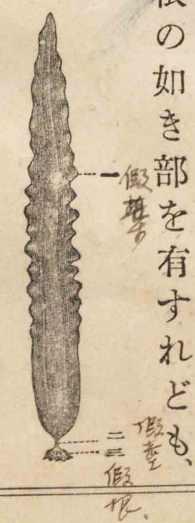 根の如き部を有すれども、
一
假葉
二
假莖
三
假根、